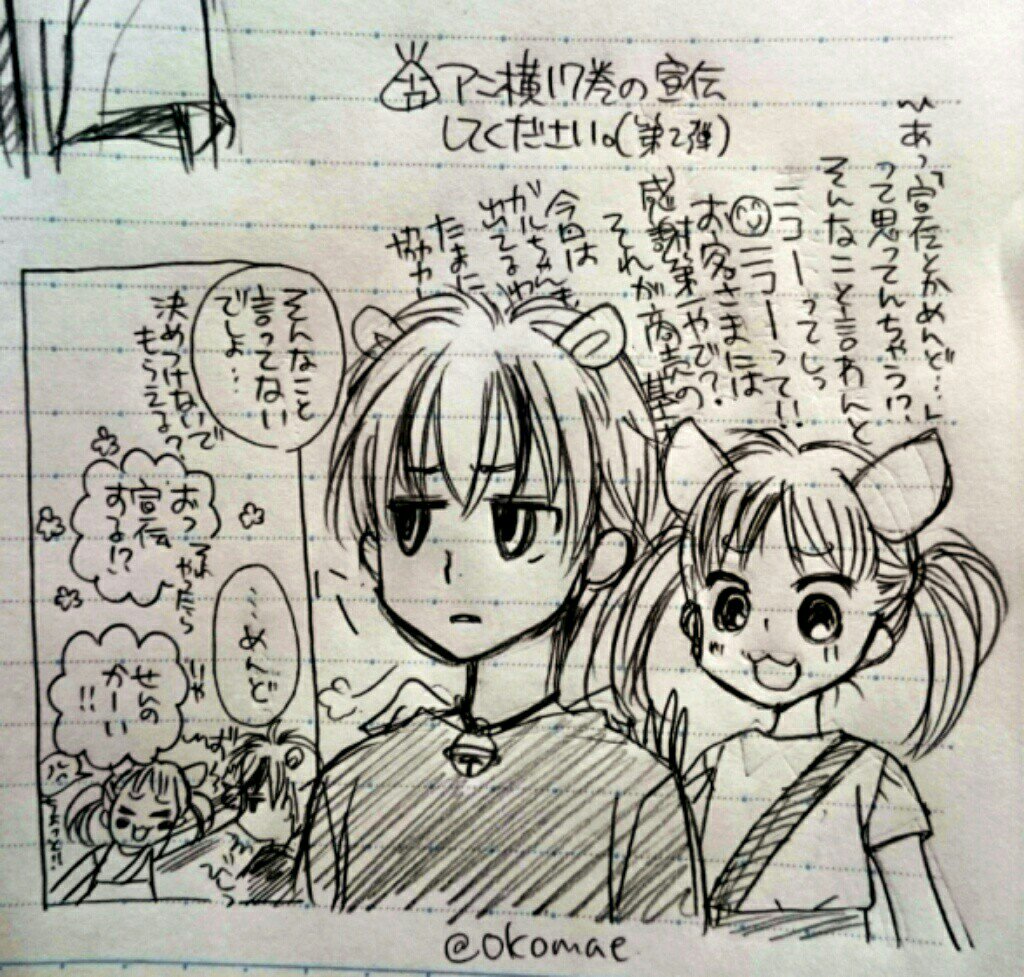 アニ横17巻の宣伝
してください。(第2弾)
あっ「宣伝とかめんど…」
って思ってんちゃう!?
そんなこと言わんと
ニコーってしっ
ニコーって!!
お客さまには
感謝第一やで?
それが商売の
今日は
ガルちゃんも
出てるわ
たまに
協力
そんなこと
言ってない
でしょ…
決めつけないで
もらえる?
おっ
宣伝
する!?
そやったら
…めんど
せんの
かーい
!!
@okomae